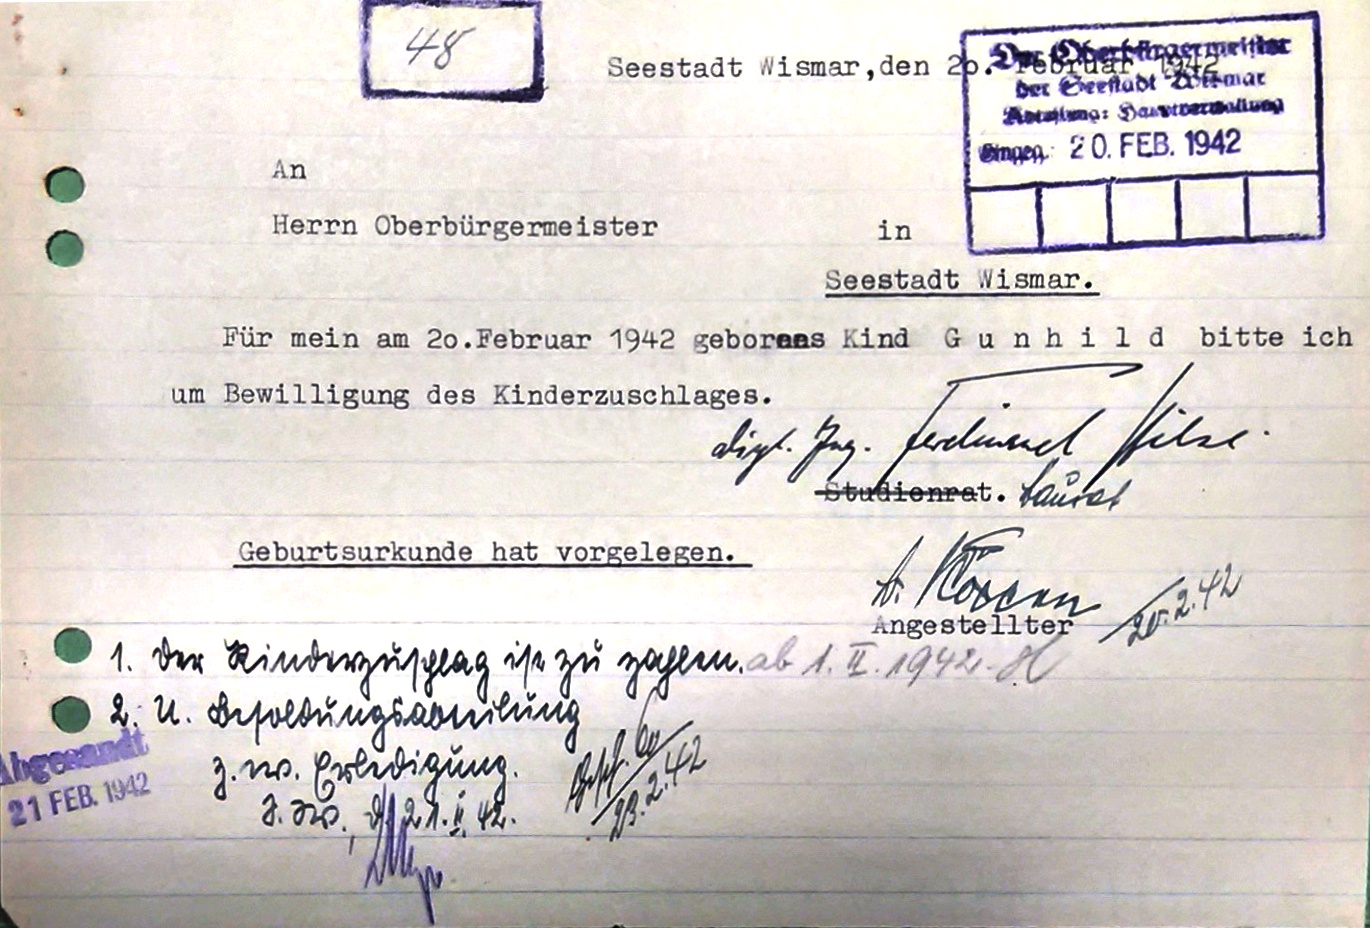 48
Seestadt Wismar,den 2o. Februar 1942
Der Oberbürgermeister
der Seestadt Wismar
Abteilung: Hauptverwaltung
Eingeg. 20. FEB. 1942
An
Herrn Oberbürgermeister in
Seestadt Wismar.
Für mein am 2o.Februar 1942 geborenes Kind G u n h i l d bitte ich
um Bewilligung des Kinderzuschlages.
dipl. Ing. Ferdinand
Studienrat. Baurat
Geburtsurkunde hat vorgelegen.
Angestellter 20.2.42
1. Der Kinderzuschlag ist zu zahlen. ab 1. II. 1942.
2. U. Besoldungsabteilung
z. w. Erledigung.
21. II. 42.
23.2.42
Abgesandt
21 FEB. 1942